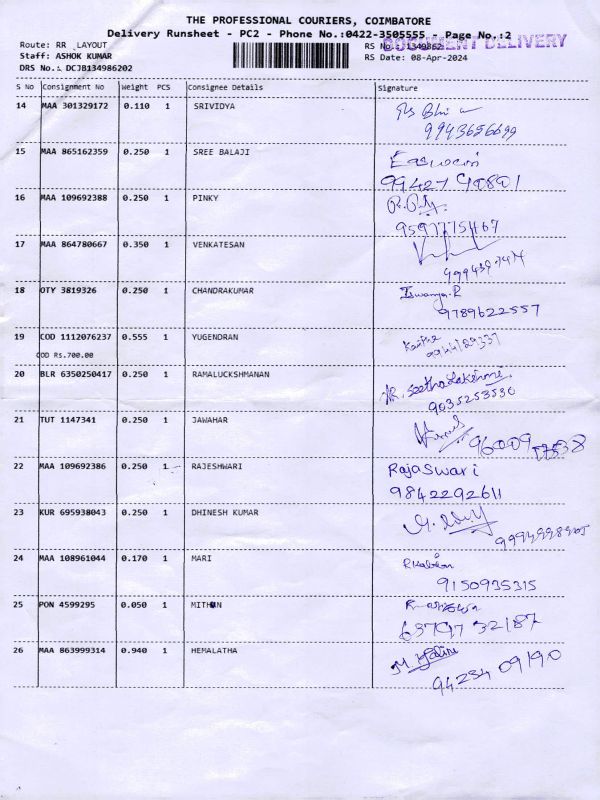 THE PROFESSIONAL COURIERS, COIMBATORE
Delivery Runsheet - PC2 - Phone No.:0422-3505555 - Page No.:2
DOCUMENT DELIVERY
Route: RR LAYOUT
RS No.: 1349862
Staff: ASHOK KUMAR
RS Date: 08-Apr-2024
DRS No.: DCJB134986202
S No Consignment No Weight PCS Consignee Details Signature
14 MAA 301329172 0.110 1 SRIVIDYA
9943656699
15 MAA 865162359 0.250 1 SREE BALAJI
16 MAA 109692388 0.250 1 PINKY
9597775467
17 MAA 864780667 0.350 1 VENKATESAN
18 OTY 3819326 0.250 1 CHANDRAKUMAR
Iswarya.R
9789622557
19 COD 1112076237 0.555 1 YUGENDRAN
COD Rs.700.00
9944189337
20 BLR 6350250417 0.250 1 RAMALUCKSHMANAN
R. Seethalakshmi.
9035253530
21 TUT 1147341 0.250 1 JAWAHAR
22 MAA 109692386 0.250 1 RAJESHWARI
Rajaswari
9842292611
23 KUR 695938043 0.250 1 DHINESH KUMAR
24 MAA 108961044 0.170 1 MARI
9150935315
25 PON 4599295 0.050 1 MITHUN
63797 32187
26 MAA 863999314 0.940 1 HEMALATHA
94234 09190